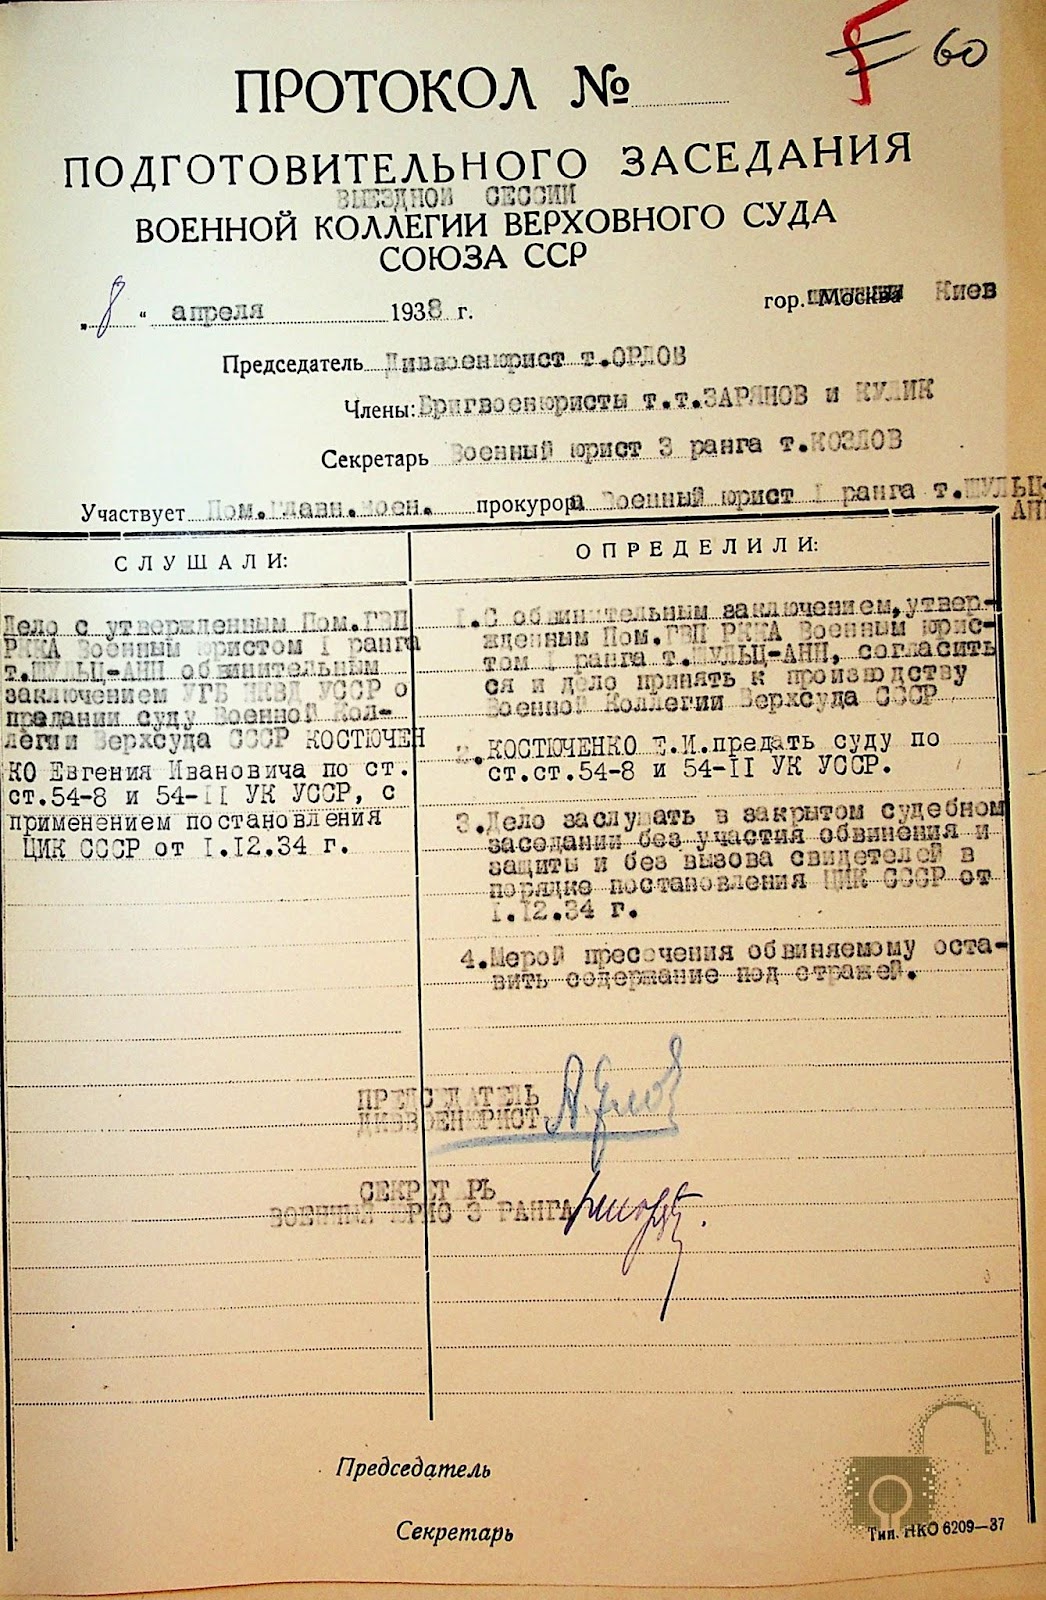 60
ПРОТОКОЛ №
ПОДГОТОВИТЕЛЬНОГО ЗАСЕДАНИЯ
ВЫЕЗДНОЙ СЕССИИ
ВОЕННОЙ КОЛЛЕГИИ ВЕРХОВНОГО СУДА
СОЮЗА ССР
„8“ апреля 1938 г. гор. Москва Киев
Председатель Диввоенюрист т.ОРЛОВ
Члены: Бригвоенюристы т.т.ЗАРЯНОВ и КУЛИК
Секретарь Военный юрист 3 ранга т.КОЗЛОВ
Участвует Пом.главн.воен. прокурора Военный юрист I ранга т.ШУЛЬЦ-
АНН
СЛУШАЛИ:
Дело с утвержденным Пом.ГВП
РККА Военным юристом I ранга
т.ШУЛЬЦ-АНН обвинительным
заключением УГБ НКВД УССР о
предании суду Военной Кол-
легии Верхсуда СССР КОСТЮЧЕН
КО Евгения Ивановича по ст.
ст.54-8 и 54-II УК УССР, с
применением постановления
ЦИК СССР от I.I2.34 г.
ОПРЕДЕЛИЛИ:
I.С обвинительным заключением,утвер-
жденным Пом.ГВП РККА Военным юрис-
том I ранга т.ШУЛЬЦ-АНН, согласить
ся и дело принять к производству
Военной Коллегии Верхсуда СССР
2.КОСТЮЧЕНКО Е.И.предать суду по
ст.ст.54-8 и 54-II УК УССР.
3.Дело заслушать в закрытом судебном
заседании без участия обвинения и
защиты и без вызова свидетелей в
порядке постановления ЦИК СССР от
I.I2.34 г.
4.Мерой пресечения обвиняемому оста-
вить содержание под стражей.
ПРЕДСЕДАТЕЛЬ
ДИВВОЕНЮРИСТ
СЕКРЕТАРЬ
ВОЕННЫЙ ЮРИС 3 РАНГА
Председатель
Секретарь
Тип. НКО 6209—37